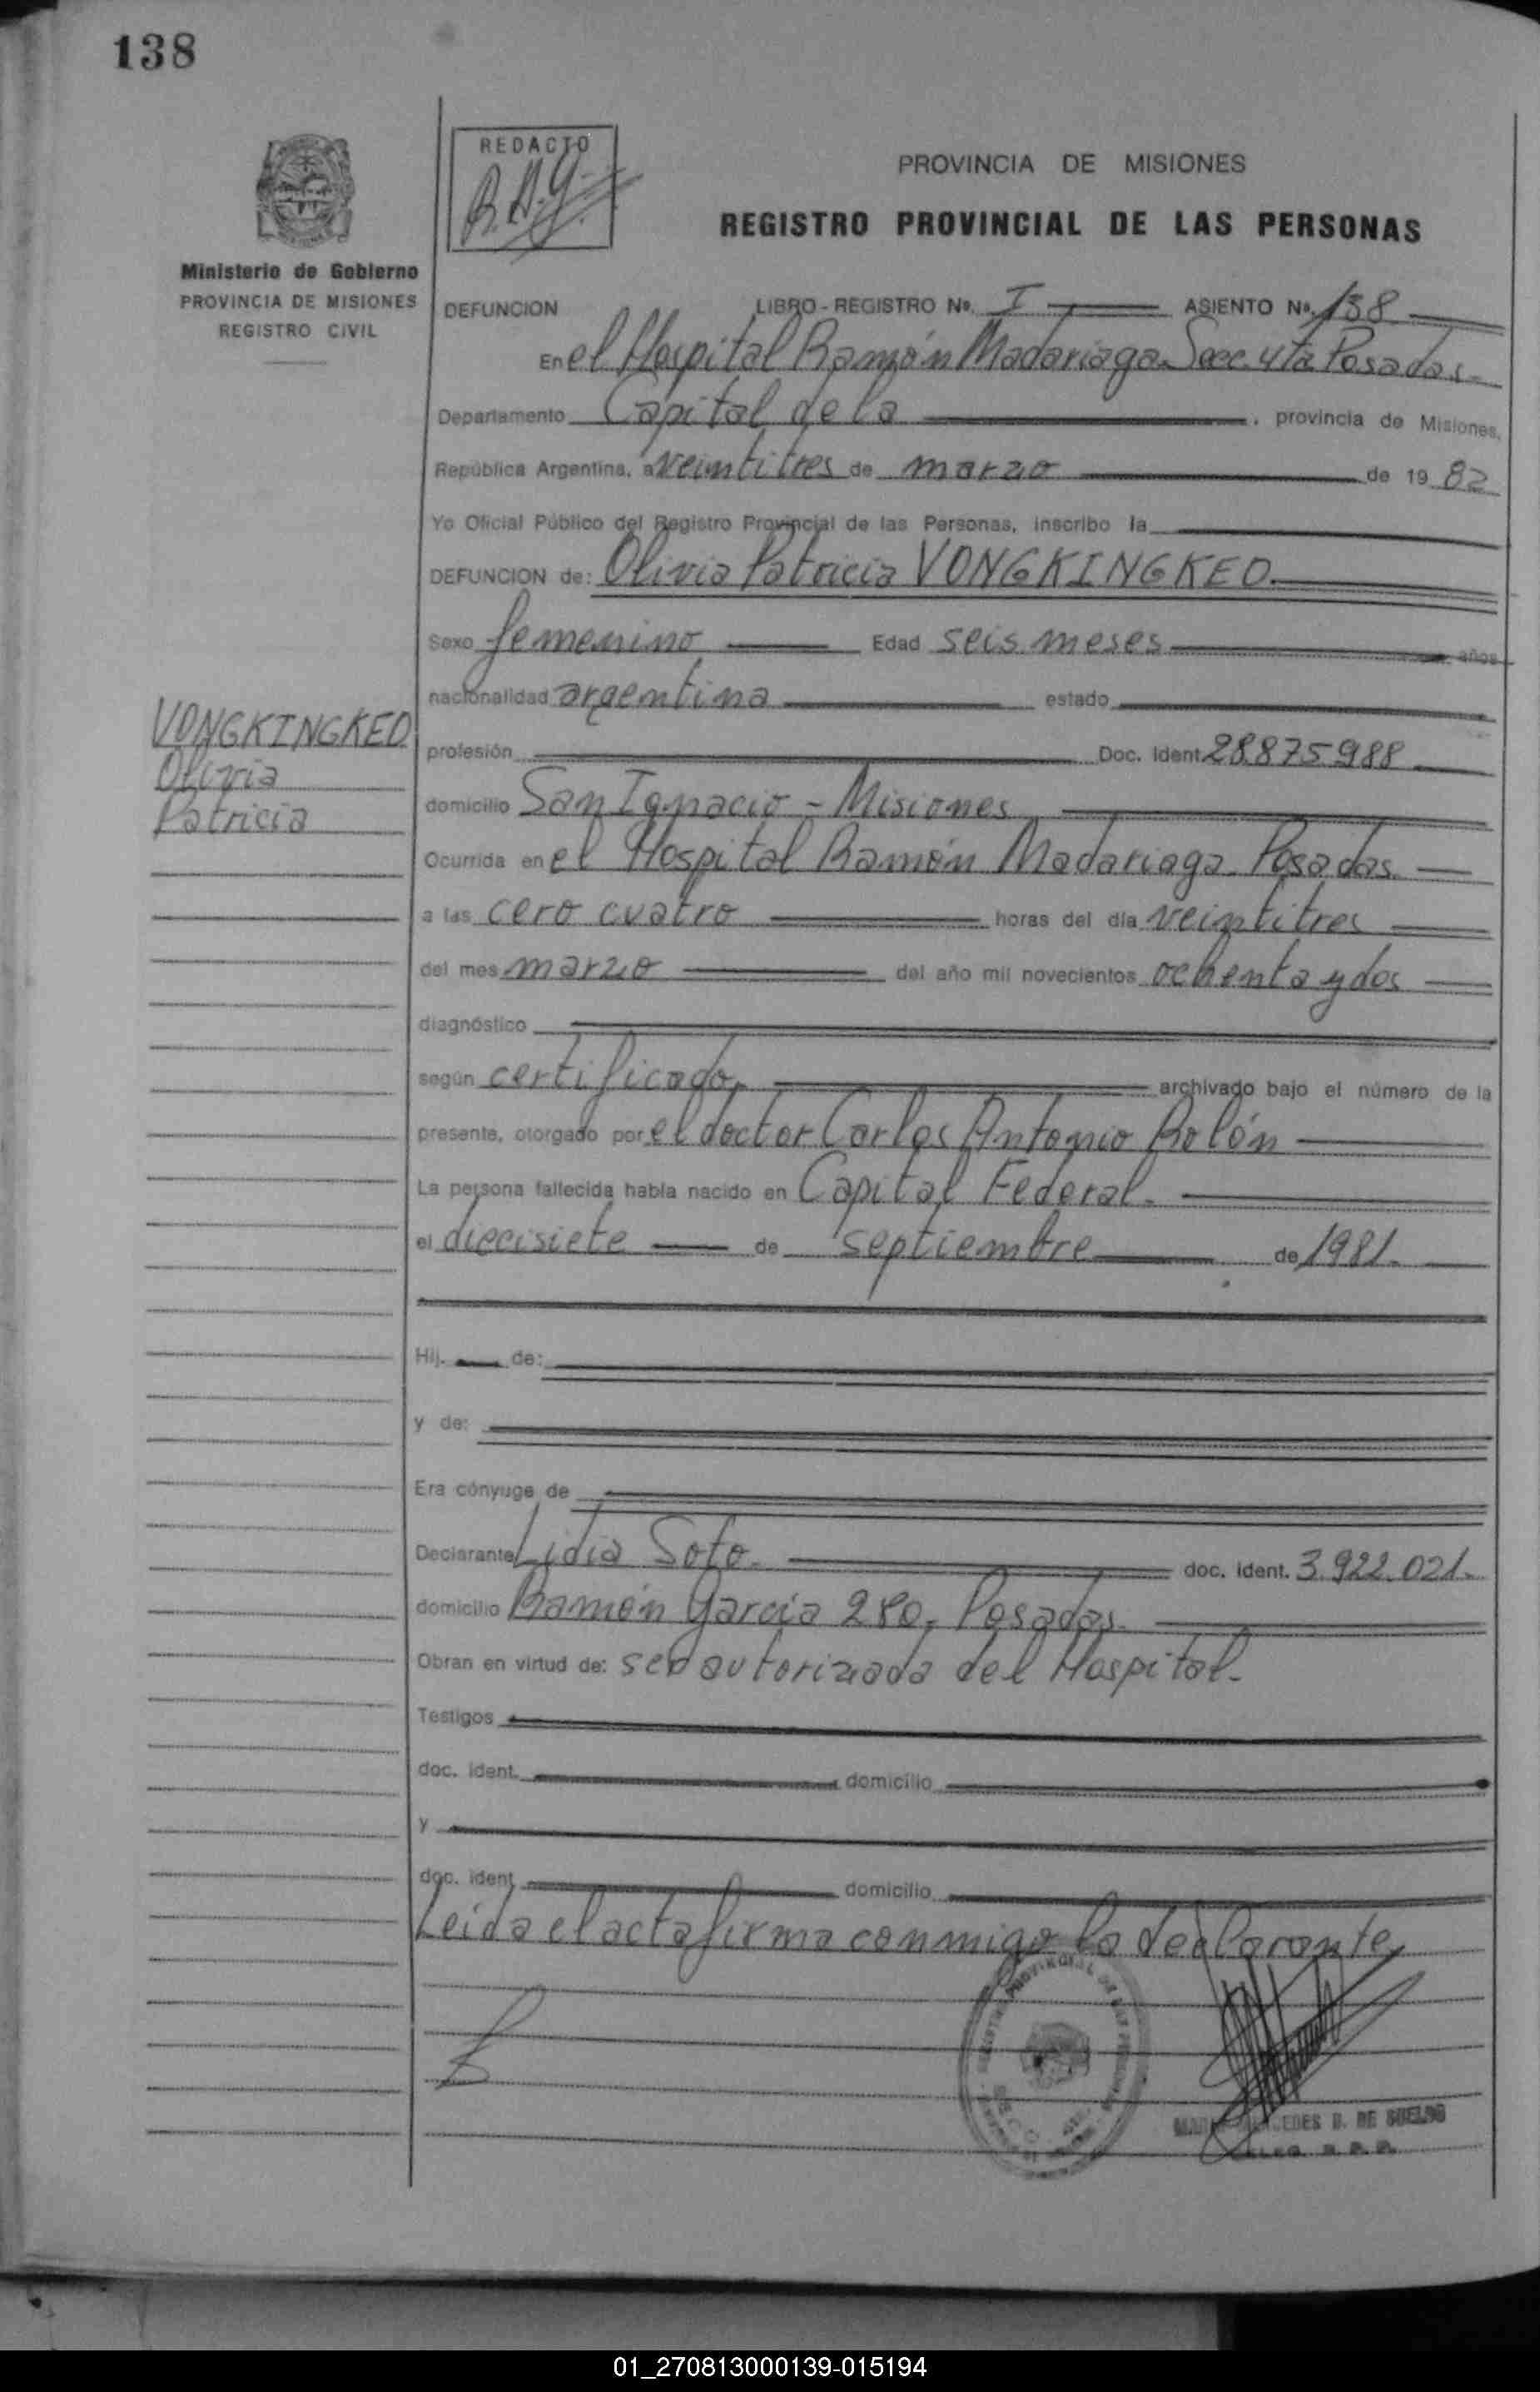 138
REDACTO
Ministerio de Gobierno
PROVINCIA DE MISIONES
REGISTRO CIVIL
PROVINCIA DE MISIONES
REGISTRO PROVINCIAL DE LAS PERSONAS
DEFUNCION LIBRO - REGISTRO No. I ASIENTO No. 138
En el Hospital Ramón Madariaga Secc. 4ta Posadas
Departamento Capital de la , provincia de Misiones,
República Argentina, a veintitres de marzo de 19 82
Yo Oficial Público del Registro Provincial de las Personas, inscribo la
DEFUNCION de: Olivia Patricia VONGKINGKEO
Sexo femenino Edad seis meses años
nacionalidad argentina estado
VONGKINGKEO
Olivia
Patricia
profesión Doc. Ident. 28.875.988
domicilio San Ignacio - Misiones
Ocurrida en el Hospital Ramón Madariaga Posadas
a las cero cuatro horas del día veintitres
del mes marzo del año mil novecientos ochenta y dos
diagnóstico
según certificado archivado bajo el número de la
presente, otorgado por el doctor Carlos Antonio Rolón
La persona fallecida había nacido en Capital Federal.
el diecisiete de septiembre de 1981.
Hij. de:
y de:
Era cónyuge de
Declarante Lidia Soto. doc. ident. 3.922.021.
domicilio Ramón García 280, Posadas.
Obran en virtud de: ser autorizada del Hospital.
Testigos
doc. ident. domicilio
y
doc. ident. domicilio
Leida el acta firma conmigo la declarante,
B. DE SUELDO
01_270813000139-015194